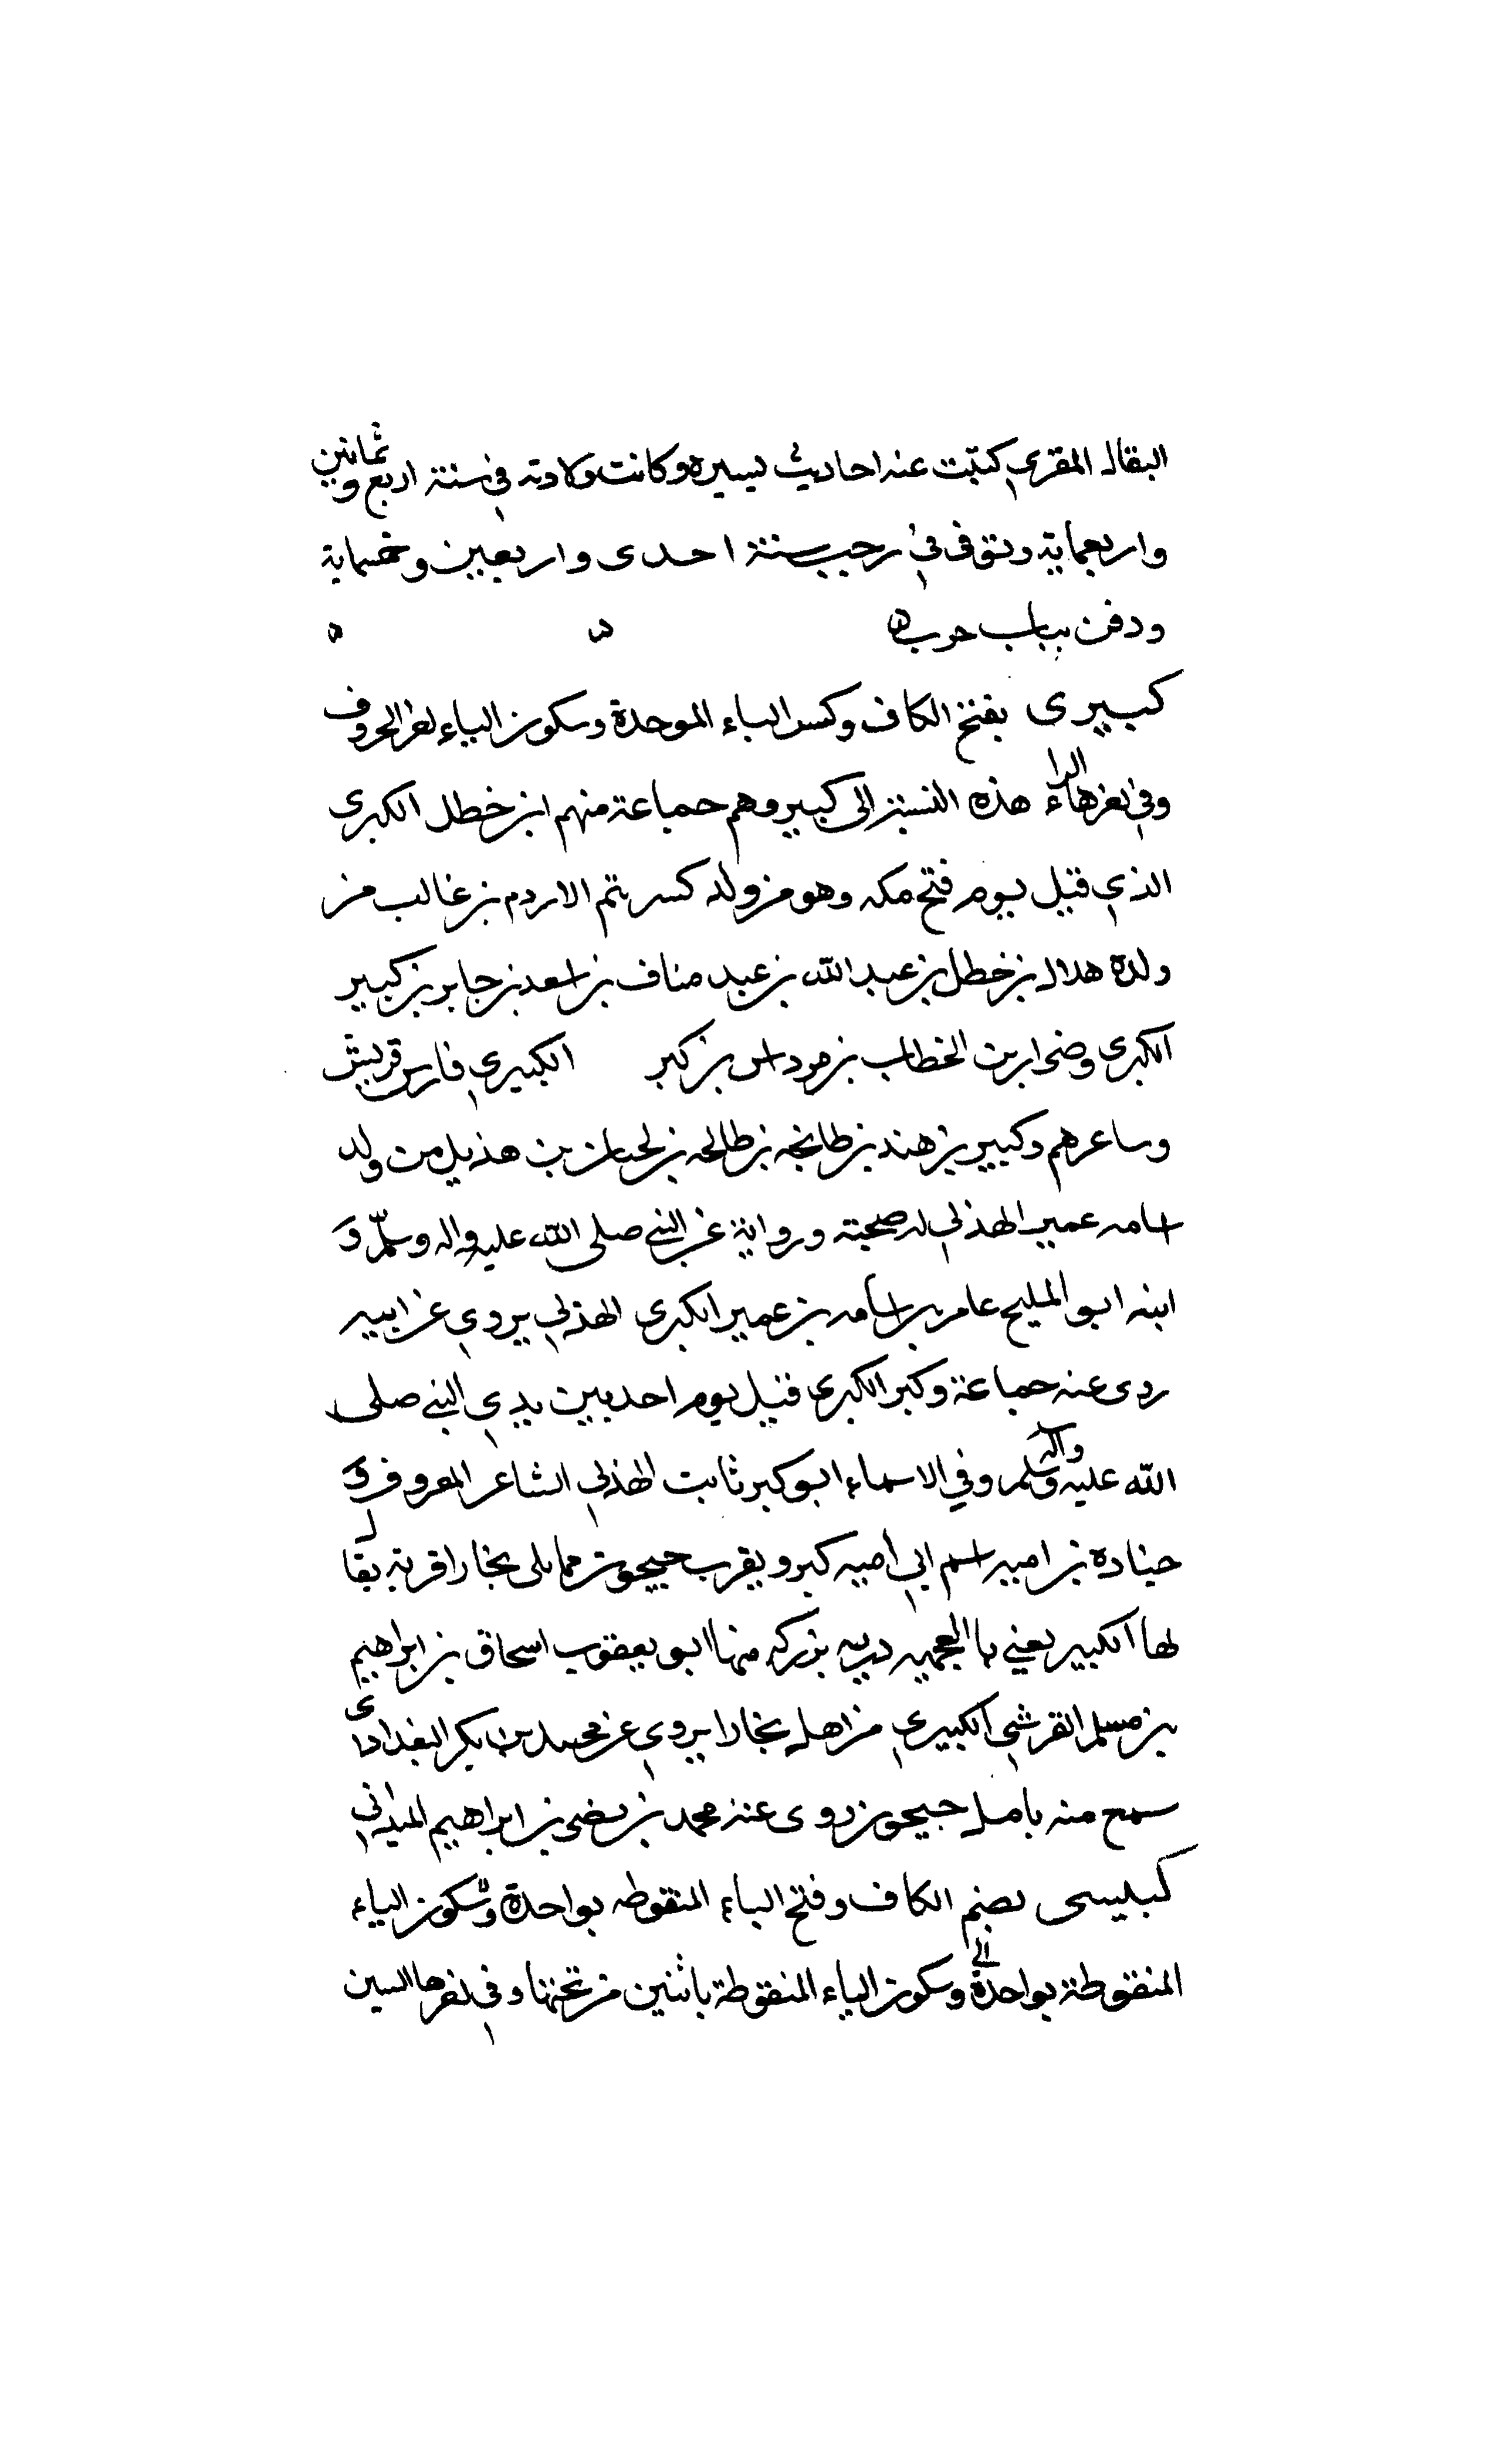 البقال المقري كتبت عنه احاديث يسيره وكانت ولادته في سنة اربع وثمانين
واربعماية وتوفى في رجب سنة احدى واربعين وخمسماية
ودفن بباب حرب
كبيرى بفتح الكاف وكسر الباء الموحدة وسكون الياء اخر الحروف
وفي اخرها الراء هذه النسبة الى كبير وهم جماعة منهم ابن خطل الكبرى
الذي قتل يوم فتح مكه وهو من ولد كسر بتم الاردم بن غالب من
ولده هدال بن خطل بن عبد الله بن عبد مناف بن اسعد بن جابر بن كبير
الكبرى وضرار بن الخطاب بن مرداس بن كبر الكبيري فارس قريش
وساعرهم وكبير بن هند بن طابخه بن طالحه بن لحيان بن هذيل من ولد
اسامه عمير الهذلي له صحبة ورواية عن النبي صلى الله عليه واله وسلم و
ابنه ابو المليح عامر بن اسامه بن عمير الكبرى الهذلي يروي عن ابيه
روى عنه جماعة وكبر الكبرى قتيل يوم احد بين يدي النبي صلى
الله عليه واله وسلم وفي الاسماء ابو كبر ثابت الهذلي الشاعر المعروف و
جناده بن اميه اسم ابي اميه كبر وبقرب جيحون مما يلى بخارا قرية يقال
لها الكبير يعني بالعجميه ديه بزركه منها ابو يعقوب اسحاق بن ابراهيم
بن مسلم القرشي الكبيري من اهل بخارا يروي عن محمد بن بكر البغدادى
سمع منه بامل جيحون روى عنه محمد بن نصر بن ابراهيم الميداني
كبليسى بضم الكاف وفتح الباء المنقوطه بواحدة وسكون الياء
المنقوطة بواحدة وسكون الياء المنقوطة باثنين من تحتها وفي اخرها السين